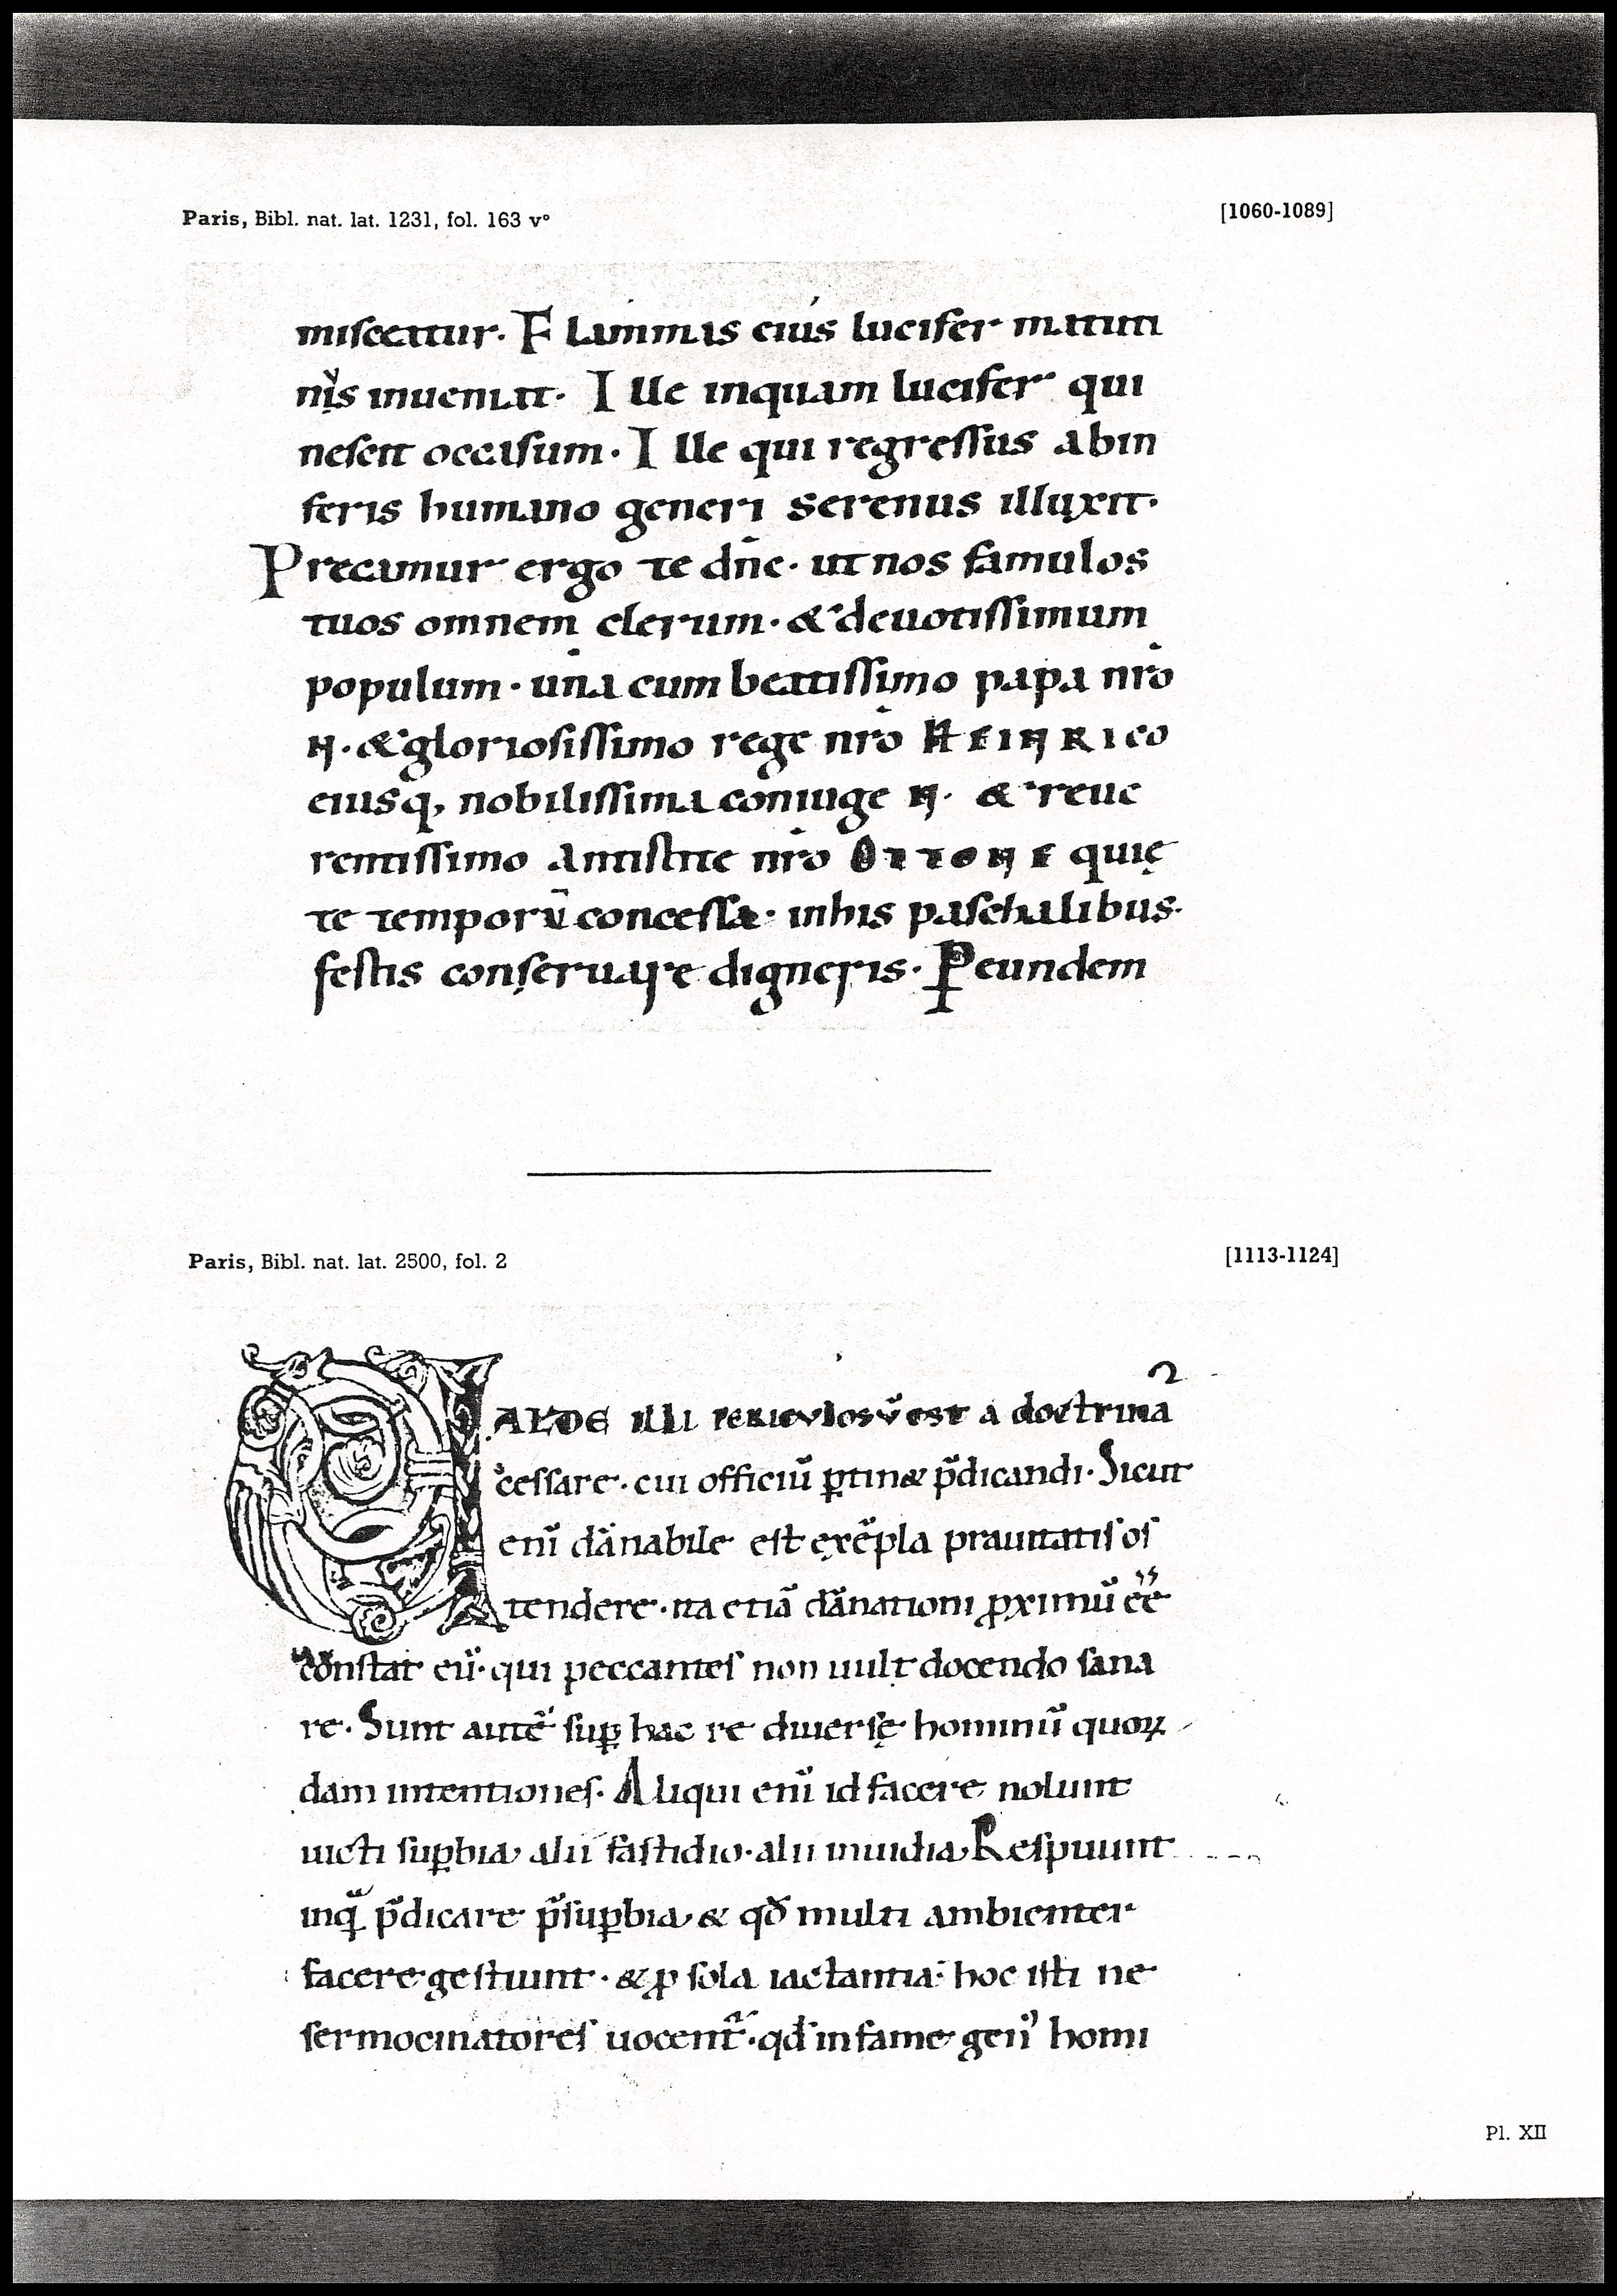 Paris, Bibl. nat. lat. 1231, fol. 163 v°
[1060-1089]
misceatur. Flammas eius lucifer matuti
nꝰ inueniat. Ille inquam lucifer qui
nescit occasum. Ille qui regressus ab in
feris humano generi serenus illuxit.
Precamur ergo te dn̄e. ut nos famulos
tuos omnem clerum. & deuotissimum
populum. una cum beatissimo papa nr̄o
N. & gloriosissimo rege nr̄o HEINRICO
eiusq, nobilissima coniuge N. & reue
rentissimo antistite nr̄o OTTONE quię
te temporū concessa. in his paschalibus
festis conseruare digneris. Ꝑ eundem
Paris, Bibl. nat. lat. 2500, fol. 2
[1113-1124]
2
VALDE illi periculosū est a doctrina
cessare. cui officiū ꝑtin& p̄dicandi. Sicut
enī dānabile est exēpla prauitatis os
tendere. ita etiā dānationi ꝓximū eē
constat eū. qui peccantes non uult docendo sana
re. Sunt autē suꝑ hac re diuersę hominū quoꝝ
dam intentiones. Aliqui enī id facere nolunt
uicti suꝑbia, alii fastidio. alii inuidia, Respuunt
inq̄ p̄dicare p̄ suꝑbia, & qđ multi ambienter
facere gestiunt. & ꝓ sola iactantia: hoc isti ne
sermocinatores uocent᷑. qđ infame gen᾽ homi
Pl. XII